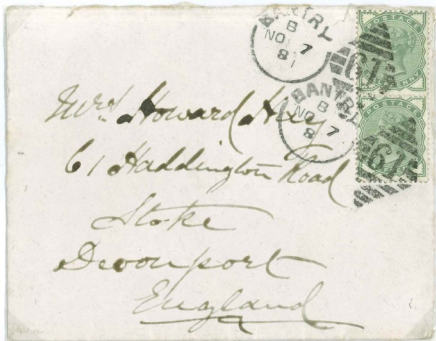 BANTRY
B
NO 7
81
BANTRY
B
NO 7
81
POSTAGE
Mrs Howard Hill
61 Haddington Road
Stoke
Devonport
England